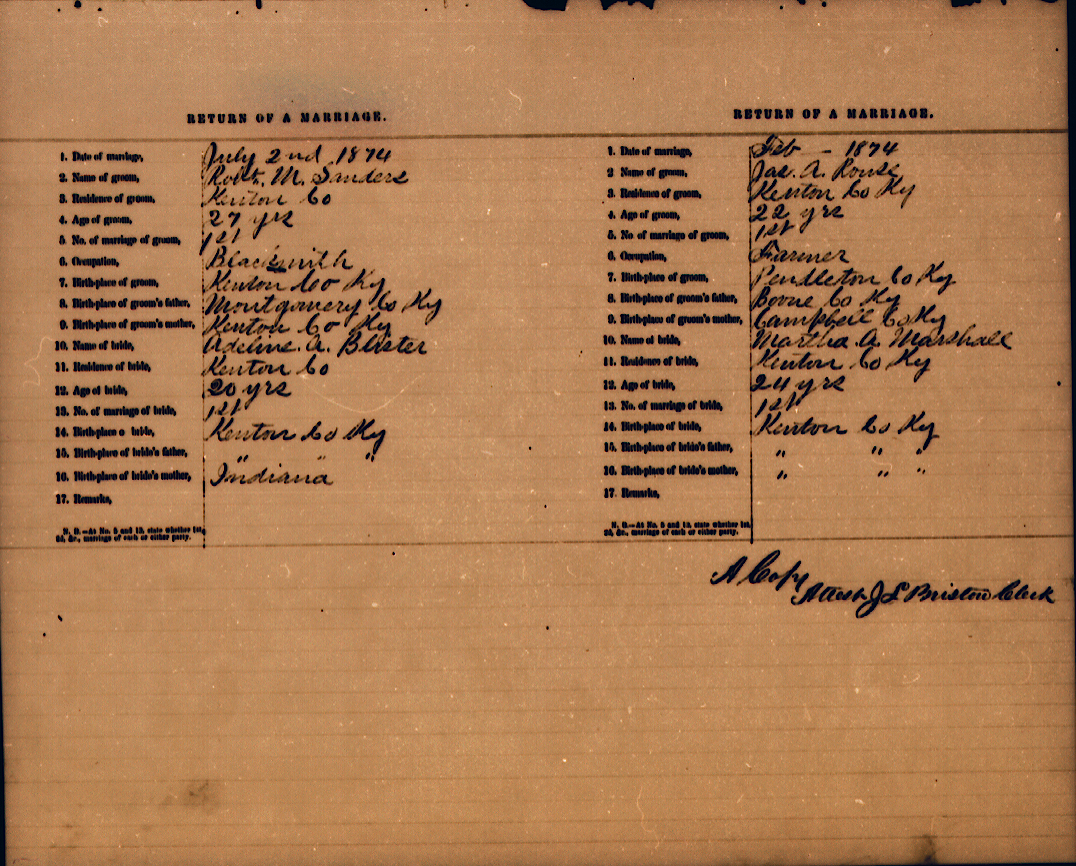 RETURN OF A MARRIAGE.
1. Date of marriage, July 2nd 1874
2. Name of groom, Robt. M. Sanders
3. Residence of groom, Kenton Co
4. Age of groom, 27 yrs
5. No. of marriage of groom, 1st
6. Occupation, Blacksmith
7. Birth-place of groom, Kenton Co Ky
8. Birth-place of groom's father, Montgomery Co Ky
9. Birth-place of groom's mother, Kenton Co Ky
10. Name of bride, Adeline. A.
11. Residence of bride, Kenton Co
12. Age of bride, 20 yrs
13. No. of marriage of bride, 1st
14. Birth-place o bride, Kenton Co Ky
15. Birth-place of bride's father, " " "
16. Birth-place of bride's mother, Indiana
17. Remarks,
N. B.—At No. 5 and 13, state whether 1st,
2d, &c., marriage of each or either party.
RETURN OF A MARRIAGE.
1. Date of marriage, Feb – 1874
2 Name of groom, Jas. A. Rouse
3. Residence of groom, Kenton Co Ky
4. Age of groom, 22 yrs
5. No. of marriage of groom, 1st
6. Occupation, Farmer
7. Birth-place of groom, Pendleton Co Ky
8. Birth-place of groom's father, Boone Co Ky
9. Birth-place of groom's mother, Campbell Co Ky
10. Name of bride, Martha. A. Marshall
11. Residence of bride, Kenton Co Ky
12. Age of bride, 24 yrs
13. No. of marriage of bride, 1st
14. Birth-place of bride, Kenton Co Ky
15. Birth-place of bride's father, " " "
16. Birth-place of bride's mother, " " "
17. Remarks,
N. B.—At No. 5 and 13, state whether 1st,
2d, &c., marriage of each or either party.
A Copy
Attest J L Bristow Clerk